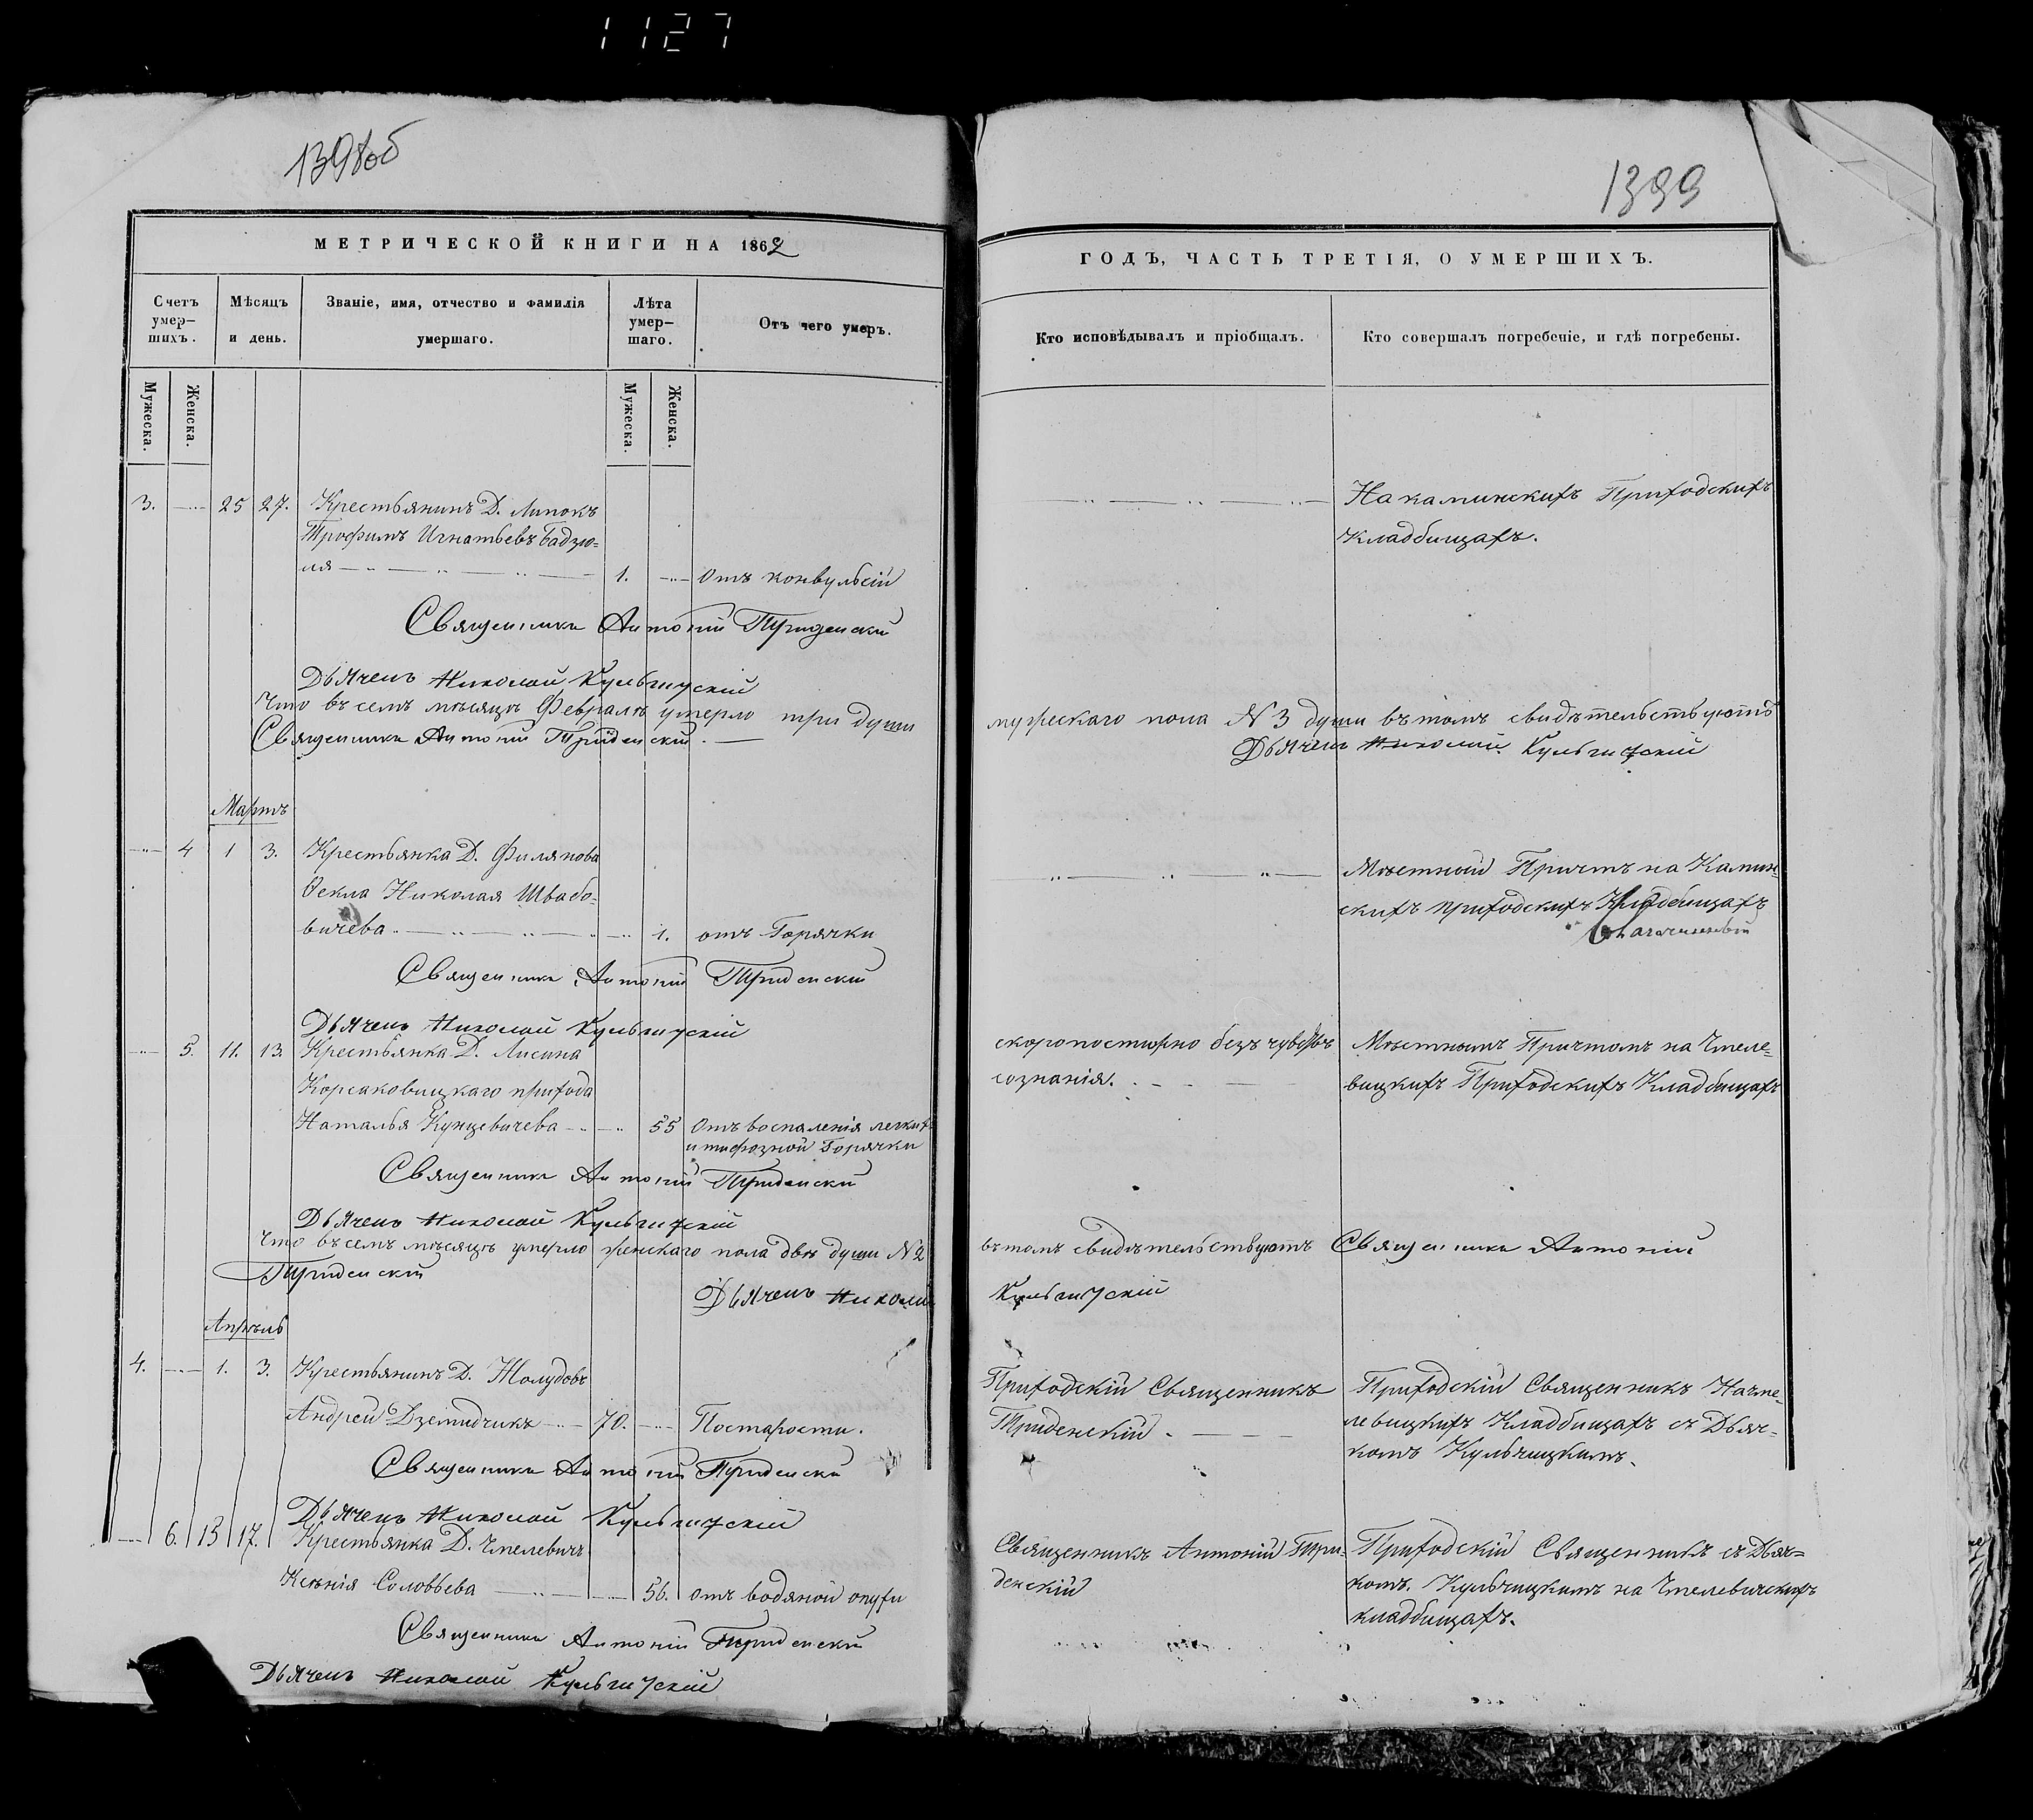 1127
1398об
1399
МЕТРИЧЕСКОЙ КНИГИ НА 1862
Счетъ умер-шихъ.
Мѣсяцъ и день.
Званіе, имя, отчество и фамилія умершаго.
Лѣта умер-шаго.
Отъ чего умеръ.
Мужеска.
Женска.
Мужеска.
Женска.
3. 25 27. Крестьянинъ Д. Липокъ
Трофимъ Игнатьевъ Бадзю-
ля 1. Отъ конвульсій
Священникъ Антоній Триденскій
Дьячекъ Николай Кульчицкій
Что въ семъ мѣсяцѣ Февралѣ умерло три души
Священникъ Антоній Триденскій.
Мартъ
4 1 3. Крестьянка Д. Филяпова
Ѳекла Николая Швабо-
вичева 1. отъ Горячки
Священникъ Антоній Триденскій
Дьячекъ Николай Кульчицкій
5. 11. 13. Крестьянка Д. Лисина
Корсаковицкаго прихода
Наталья Кунцевичева 55 Отъ воспаленія легкихъ
и тифозной Горячки
Священникъ Антоній Триденскій
Дьячекъ Николай Кульчицкій
Что въ семъ мѣсяцѣ умерло женскаго пола двѣ души N 2
Триденскій
Дьячекъ Николай
Апрѣль
4. 1. 3. Крестьянинъ Д. Жолудовъ
Андрей Дземидчикъ 70. По старости.
Священникъ Антоній Триденскій
Дьячекъ Николай Кульчицкій
6. 15 17. Крестьянка Д. Чмелевичъ
Ксенія Соловьева 56. отъ водяной опухи
Священникъ Антоній Триденскій
Дьячекъ Николай Кульчицкій
ГОДЪ, ЧАСТЬ ТРЕТІЯ, О УМЕРШИХЪ.
Кто исповѣдывалъ и пріобщалъ.
Кто совершалъ погребеніе, и гдѣ погребены.
На каминскихъ Приходскихъ
Кладбищахъ.
мужескаго пола N 3 души въ томъ свидѣтельствуютъ
Дьячекъ Николай Кульчицкій
Мѣстный Причтъ на Камин-
скихъ приходскихъ Кладбищахъ
скоропостижно безъ чувствъ
сознанія.
Мѣстнымъ Причтомъ на Чмеле-
вицкихъ Приходскихъ Кладбищахъ
въ томъ свидѣтельствуютъ Священникъ Антоній
Кульчицкій
Приходскій Священникъ
Триденскій.
Приходскій Священникъ На чме-
левицкихъ Кладбищахъ съ Дьяч-
комъ Кульчицкимъ.
Священникъ Антоній Три-
денскій
Приходскій Священникъ съ Дьяч-
комъ. Кульчицкимъ на Чмелевичскихъ
кладбищахъ.